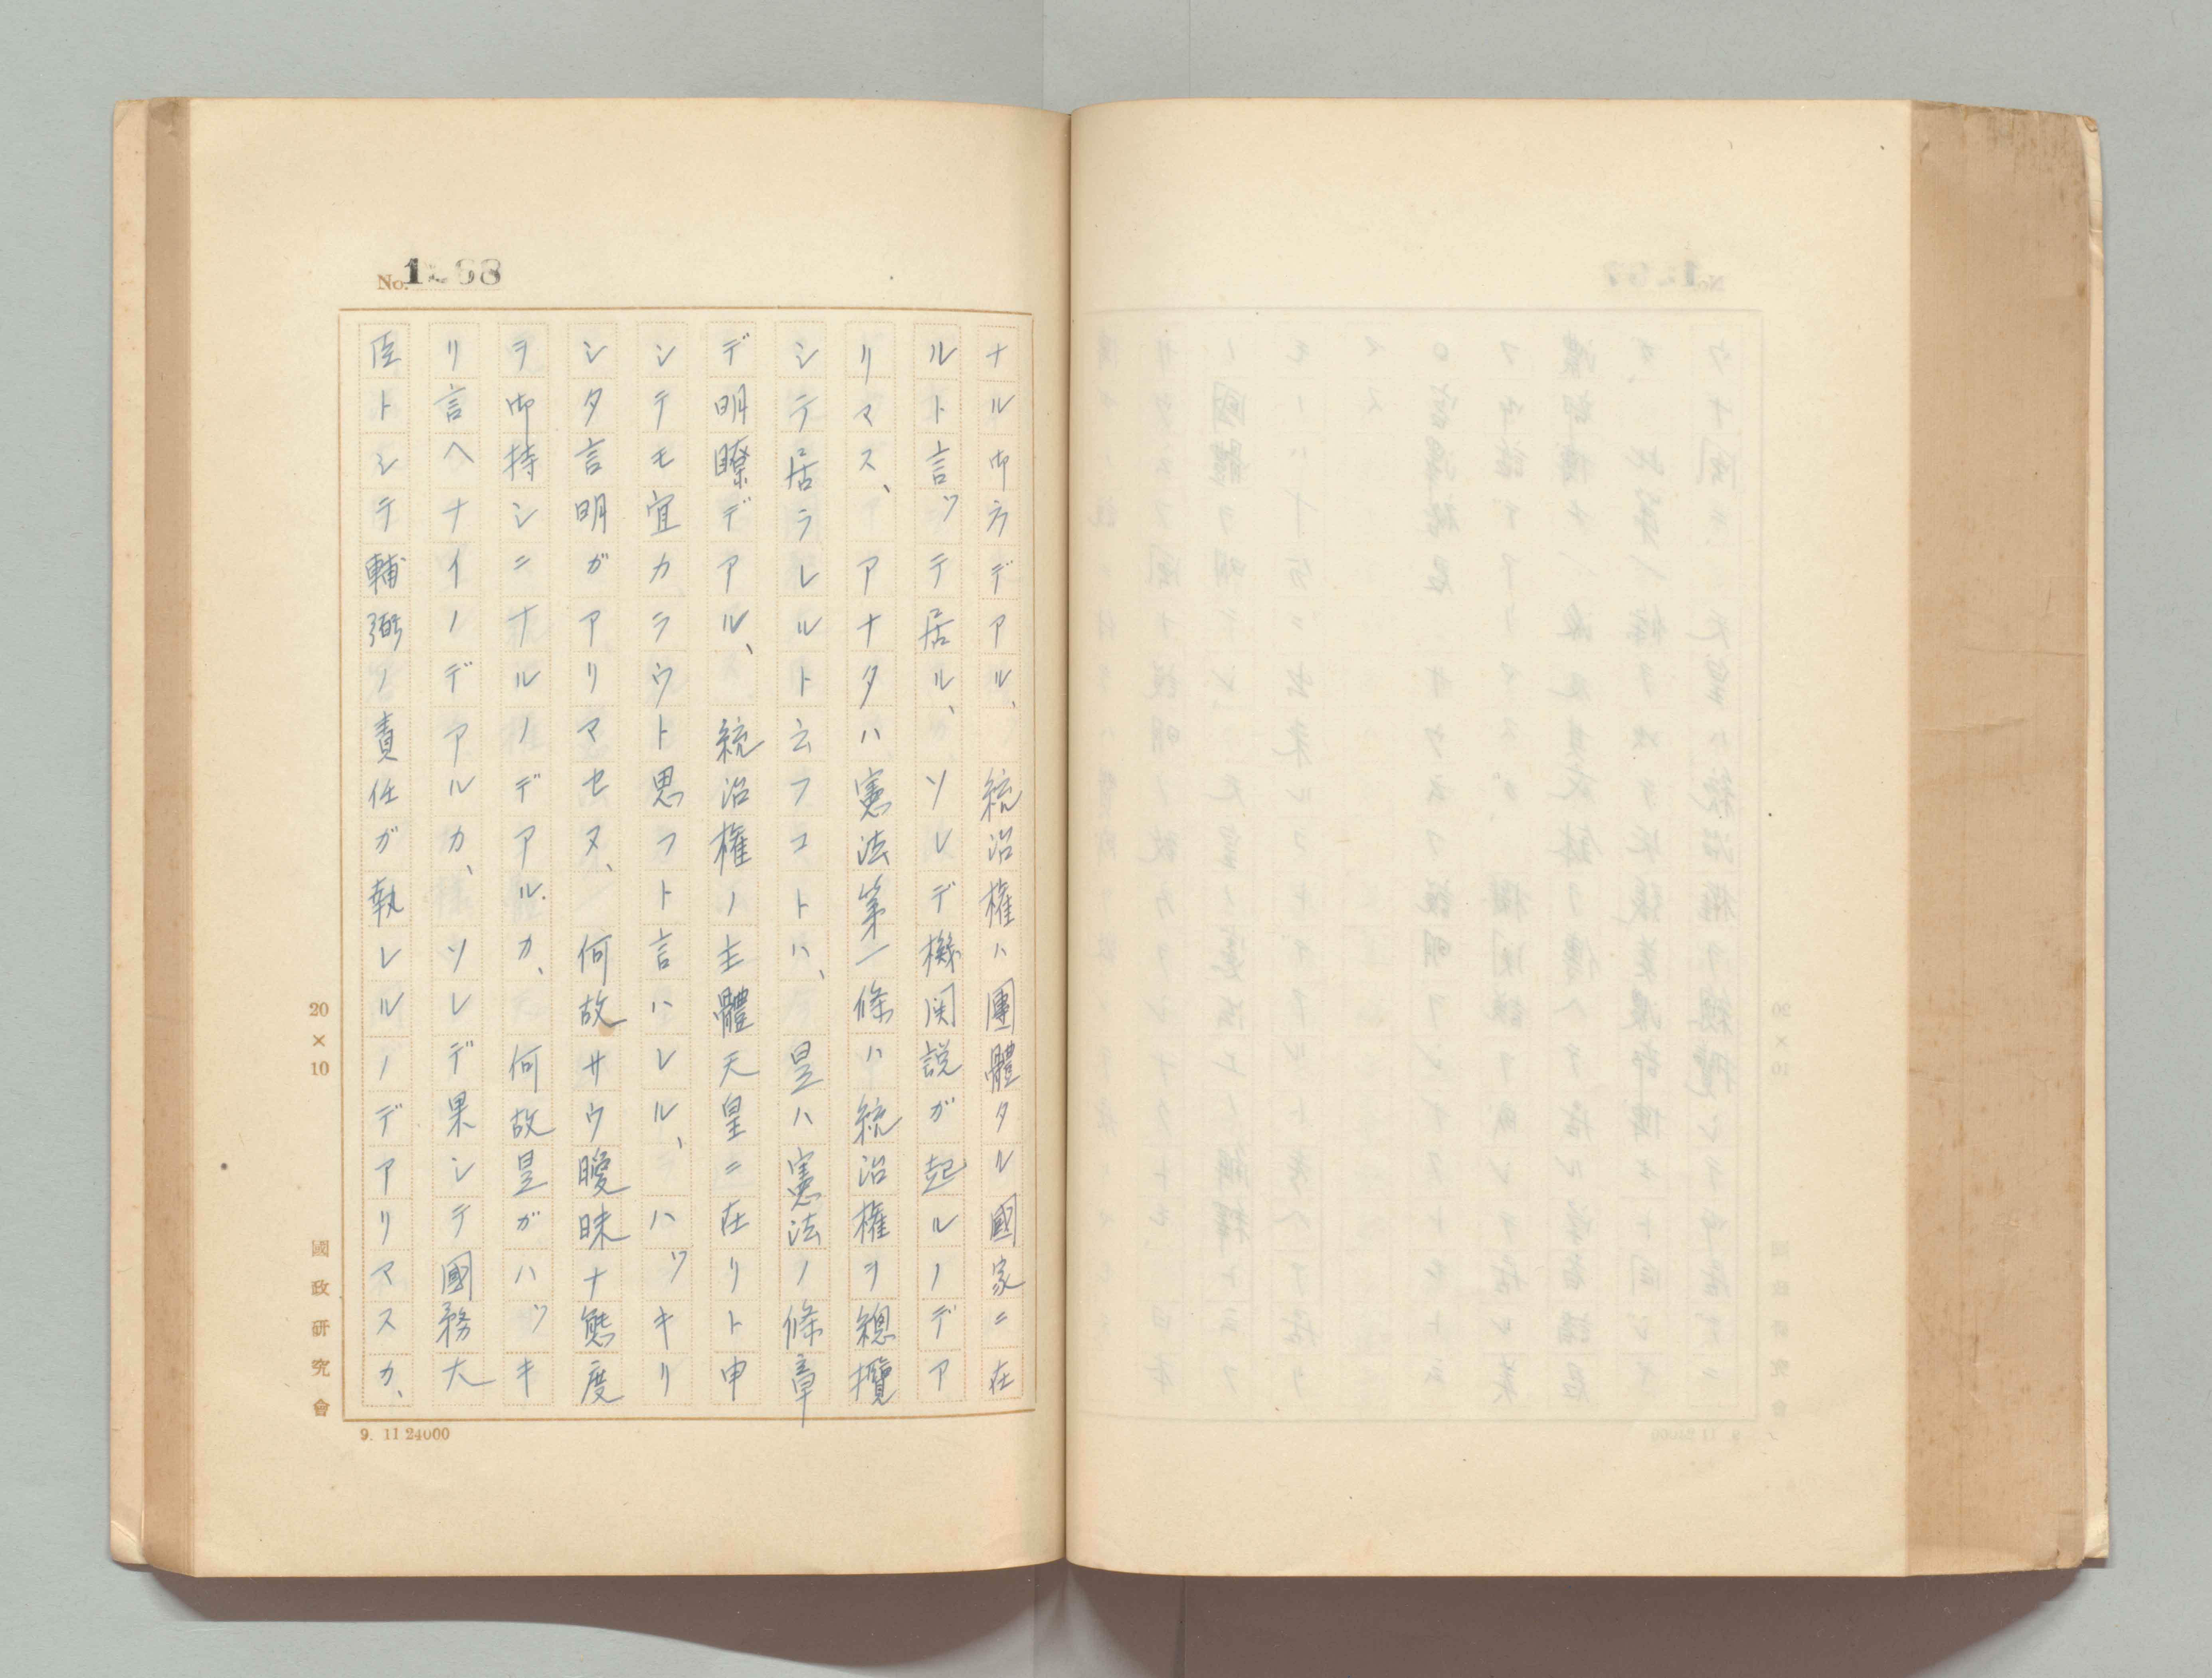 No. 1268
ナル御方デアル、統治権ハ團體タル國家ニ在
ルト言ツテ居ル、ソレデ機関説ガ起ルノデア
リマス、アナタハ憲法第一條ハ統治権ヲ總攬
シテ居ラレルト云フコトハ、是ハ憲法ノ條章
デ明瞭デアル、統治権ノ主體天皇ニ在リト申
シテモ宜カラウト思フト言ハレル、ハツキリ
シタ言明ガアリマセヌ、何故サウ曖昧ナ態度
ヲ御持シニナルノデアルカ、何故是ガハツキ
リ言ヘナイノデアルカ、ソレデ果シテ國務大
臣トシテ輔弼ノ責任ガ執レルノデアリマスカ、
20×10
國政研究會
9. 11 24000